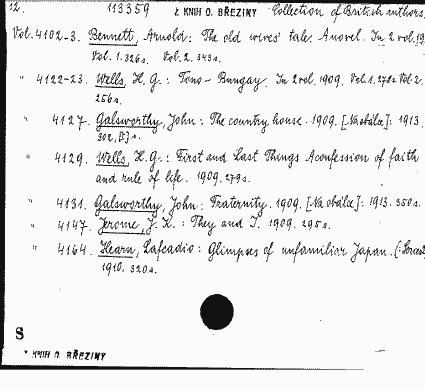 12. 113359 Z KNIH O. BŘEZINY Collection of British authors.
Vol. 4102-3. Bennett, Arnold: The old wives' tale. A novel. In 2 vol. 19
Vol. 1. 326 s. Vol. 2. 343 s.
" 4122-23. Wells, H. G.: Tono-Bungay. In 2 vol. 1909. Vol. 1. 278 s. Vol. 2.
256 s.
" 4127. Galsworthy, John: The country house. 1909. [Na obálce]: 1913.
302, [1] s.
" 4129. Wells, H. G.: First and Last Things A confession of faith
and rule of life. 1909. 279 s.
" 4131. Galsworthy, John: Fraternity. 1909. [Na obálce]: 1913. 350 s.
" 4147. Jerome, J. K.: They and I. 1909. 295 s.
" 4164. Hearn, Lafcadio: Glimpses of unfamiliar Japan.
1910. 320 s.
S
* KNIH O. BŘEZINY